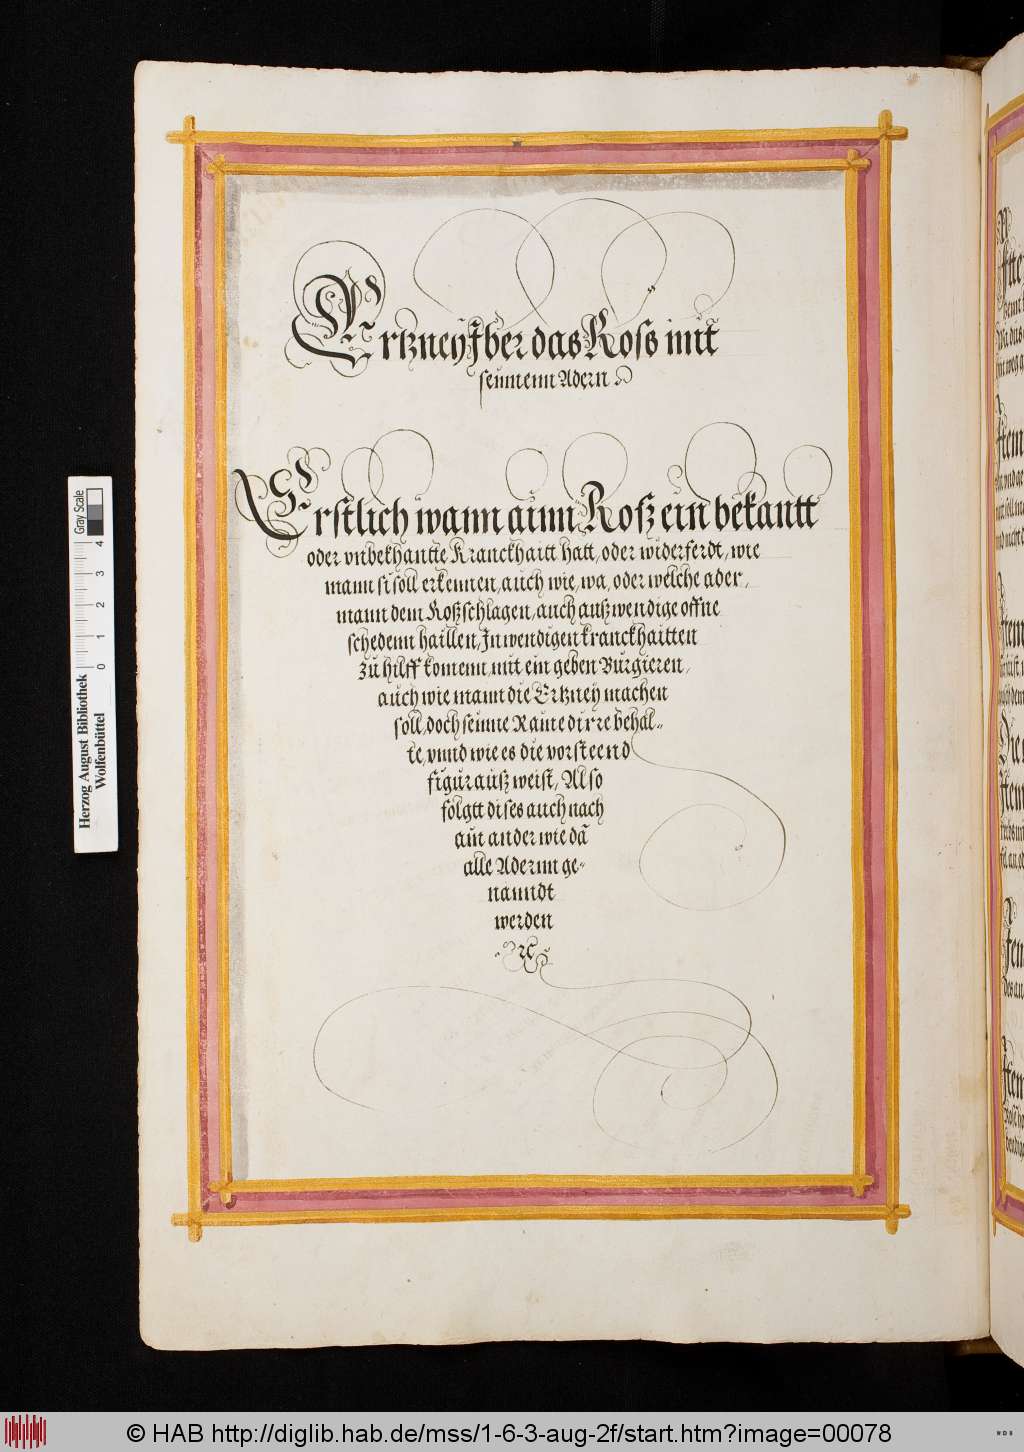 Artzney Jber das Ross mit
seinnenn Adern
Erstlich wann ainn Roß ein bekantt
oder vnbekhantte Kranckhaitt hatt, oder widerferdt, wie
mann si soll erkennen, auch wie, wa, oder welche ader,
mann dem Roß schlagen, auch außwendige offne
schedenn haillen, Inwendigen kranckhaitten
zu hilff komenn, mit ein geben Burgieren,
auch wie mann die Ertzney machen
soll, doch seinne Raine dirre behal-
te, vnnd wie es die vorsteend
figur außweist, Also
folgtt dises auch nach
ain ander wie dā
alle Adernn ge-
nanndt
werden
Herzog August Bibliothek
Wolfenbüttel
0 1 2 3 4
Gray Scale
© HAB http://diglib.hab.de/mss/1-6-3-aug-2f/start.htm?image=00078